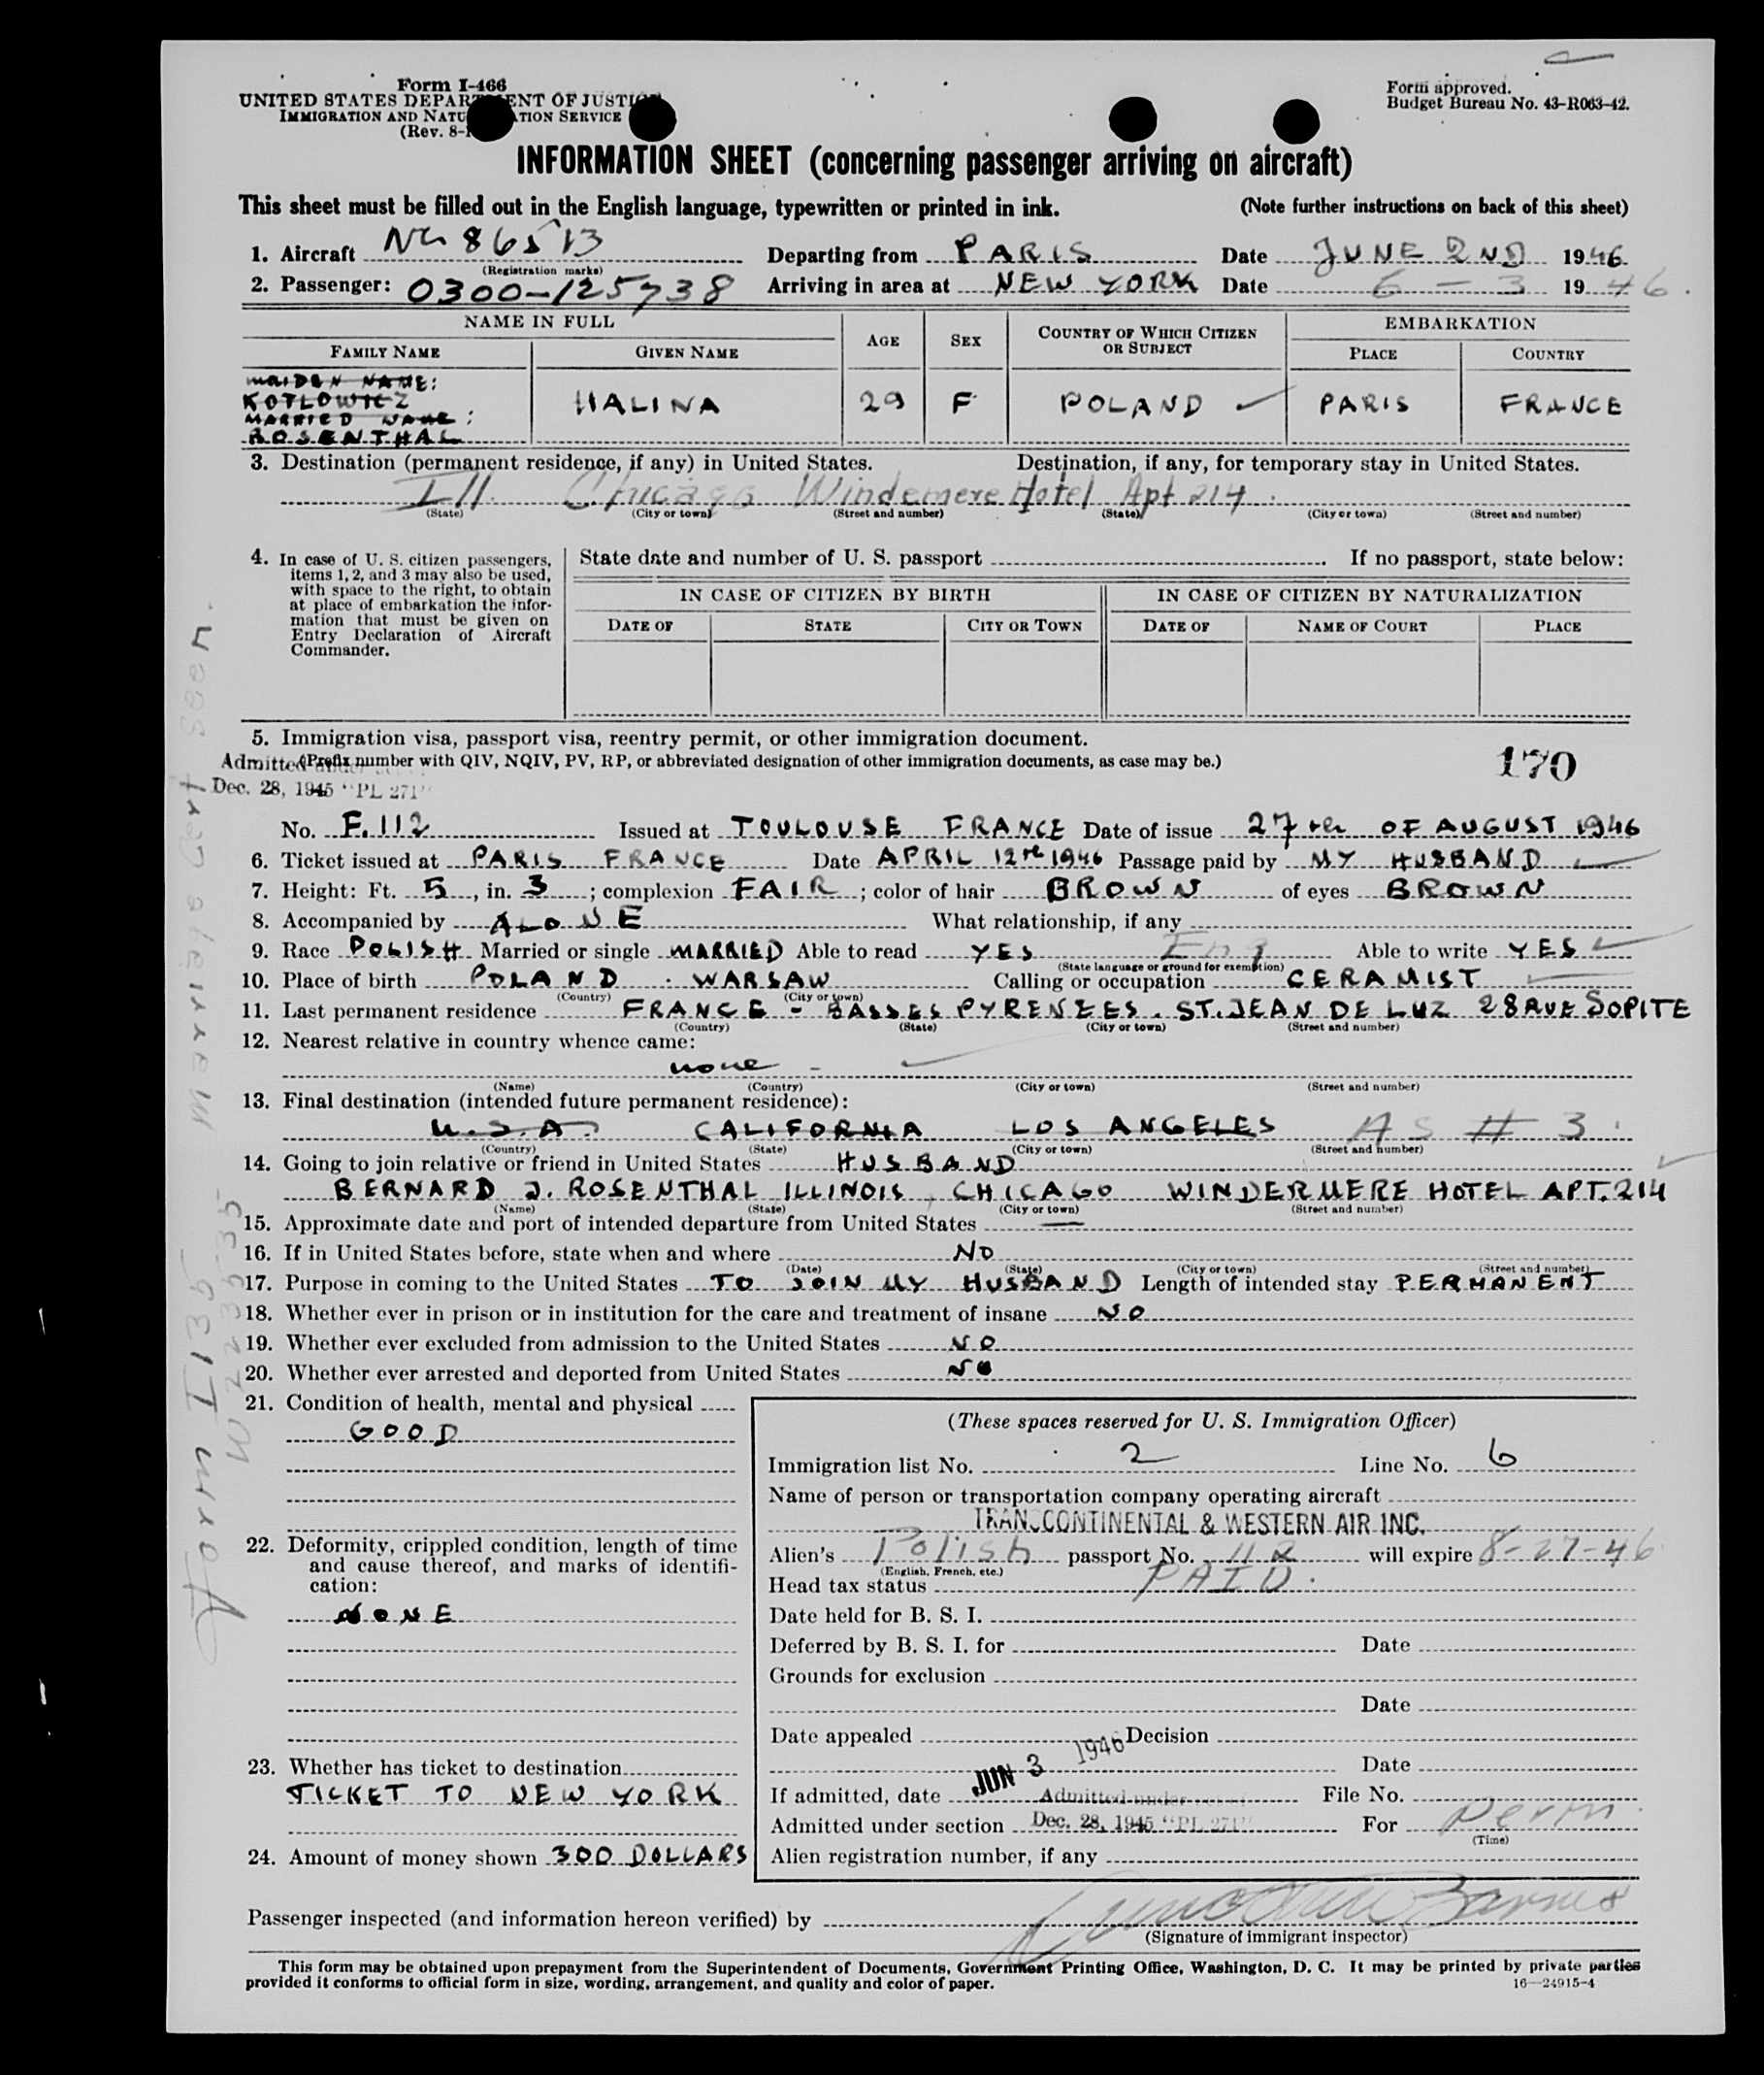 Form I-466
UNITED STATES DEPARTMENT OF JUSTICE
IMMIGRATION AND NATURALIZATION SERVICE
(Rev. 8-
Form approved.
Budget Bureau No. 43-R063-42.
INFORMATION SHEET (concerning passenger arriving on aircraft)
This sheet must be filled out in the English language, typewritten or printed in ink. (Note further instructions on back of this sheet)
1. Aircraft NC 86513 Departing from PARIS Date JUNE 2ND 1946
(Registration marks)
2. Passenger: 0300-125738 Arriving in area at NEW YORK Date 6-3 1946.
NAME IN FULL AGE SEX COUNTRY OF WHICH CITIZEN OR SUBJECT EMBARKATION
FAMILY NAME GIVEN NAME PLACE COUNTRY
MAIDEN NAME:
KOTLOWICZ HALINA 29 F POLAND PARIS FRANCE
MARRIED NAME:
ROSENTHAL
3. Destination (permanent residence, if any) in United States. Destination, if any, for temporary stay in United States.
Ill. Chicago Windemere Hotel Apt 214.
(State) (City or town) (Street and number) (State) (City or town) (Street and number)
4. In case of U. S. citizen passengers, items 1, 2, and 3 may also be used, with space to the right, to obtain at place of embarkation the information that must be given on Entry Declaration of Aircraft Commander.
State date and number of U. S. passport If no passport, state below:
IN CASE OF CITIZEN BY BIRTH IN CASE OF CITIZEN BY NATURALIZATION
DATE OF STATE CITY OR TOWN DATE OF NAME OF COURT PLACE
5. Immigration visa, passport visa, reentry permit, or other immigration document.
Admitted under (Prefix number with QIV, NQIV, PV, RP, or abbreviated designation of other immigration documents, as case may be.) 170
Dec. 28, 1945 "PL 271"
No. F.112 Issued at TOULOUSE FRANCE Date of issue 27th OF AUGUST 1946
6. Ticket issued at PARIS FRANCE Date APRIL 12th 1946 Passage paid by MY HUSBAND
7. Height: Ft. 5, in. 3; complexion FAIR; color of hair BROWN of eyes BROWN
8. Accompanied by ALONE What relationship, if any
9. Race POLISH Married or single MARRIED Able to read YES Eng Able to write YES
(State language or ground for exemption)
10. Place of birth POLAND WARSAW Calling or occupation CERAMIST
(Country) (City or town)
11. Last permanent residence FRANCE - BASSES PYRENEES. ST. JEAN DE LUZ 28 RUE SOPITE
(Country) (State) (City or town) (Street and number)
12. Nearest relative in country whence came:
none -
(Name) (Country) (City or town) (Street and number)
13. Final destination (intended future permanent residence):
U.S.A. CALIFORNIA LOS ANGELES AS # 3.
(Country) (State) (City or town) (Street and number)
14. Going to join relative or friend in United States HUSBAND
BERNARD J. ROSENTHAL ILLINOIS, CHICAGO WINDERMERE HOTEL APT. 214
(Name) (State) (City or town) (Street and number)
15. Approximate date and port of intended departure from United States —
16. If in United States before, state when and where NO
(Date) (State) (City or town) (Street and number)
17. Purpose in coming to the United States TO JOIN MY HUSBAND Length of intended stay PERMANENT
18. Whether ever in prison or in institution for the care and treatment of insane NO
19. Whether ever excluded from admission to the United States NO
20. Whether ever arrested and deported from United States NO
21. Condition of health, mental and physical
GOOD
22. Deformity, crippled condition, length of time and cause thereof, and marks of identification:
NONE
23. Whether has ticket to destination
TICKET TO NEW YORK
24. Amount of money shown 300 DOLLARS
(These spaces reserved for U. S. Immigration Officer)
Immigration list No. 2 Line No. 6
Name of person or transportation company operating aircraft
TRANSCONTINENTAL & WESTERN AIR INC.
Alien's Polish passport No. 112 will expire 8-27-46
(English, French, etc.)
Head tax status PAID.
Date held for B. S. I.
Deferred by B. S. I. for Date
Grounds for exclusion
Date
Date appealed Decision
Date
If admitted, date JUN 3 1946 File No.
Admitted under
Admitted under section Dec. 28, 1945 "PL 271" For Perm.
(Time)
Alien registration number, if any
Passenger inspected (and information hereon verified) by Barnes
(Signature of immigrant inspector)
This form may be obtained upon prepayment from the Superintendent of Documents, Government Printing Office, Washington, D. C. It may be printed by private parties
provided it conforms to official form in size, wording, arrangement, and quality and color of paper. 16—24915-4
Marriage Cert seen.
Form I 135